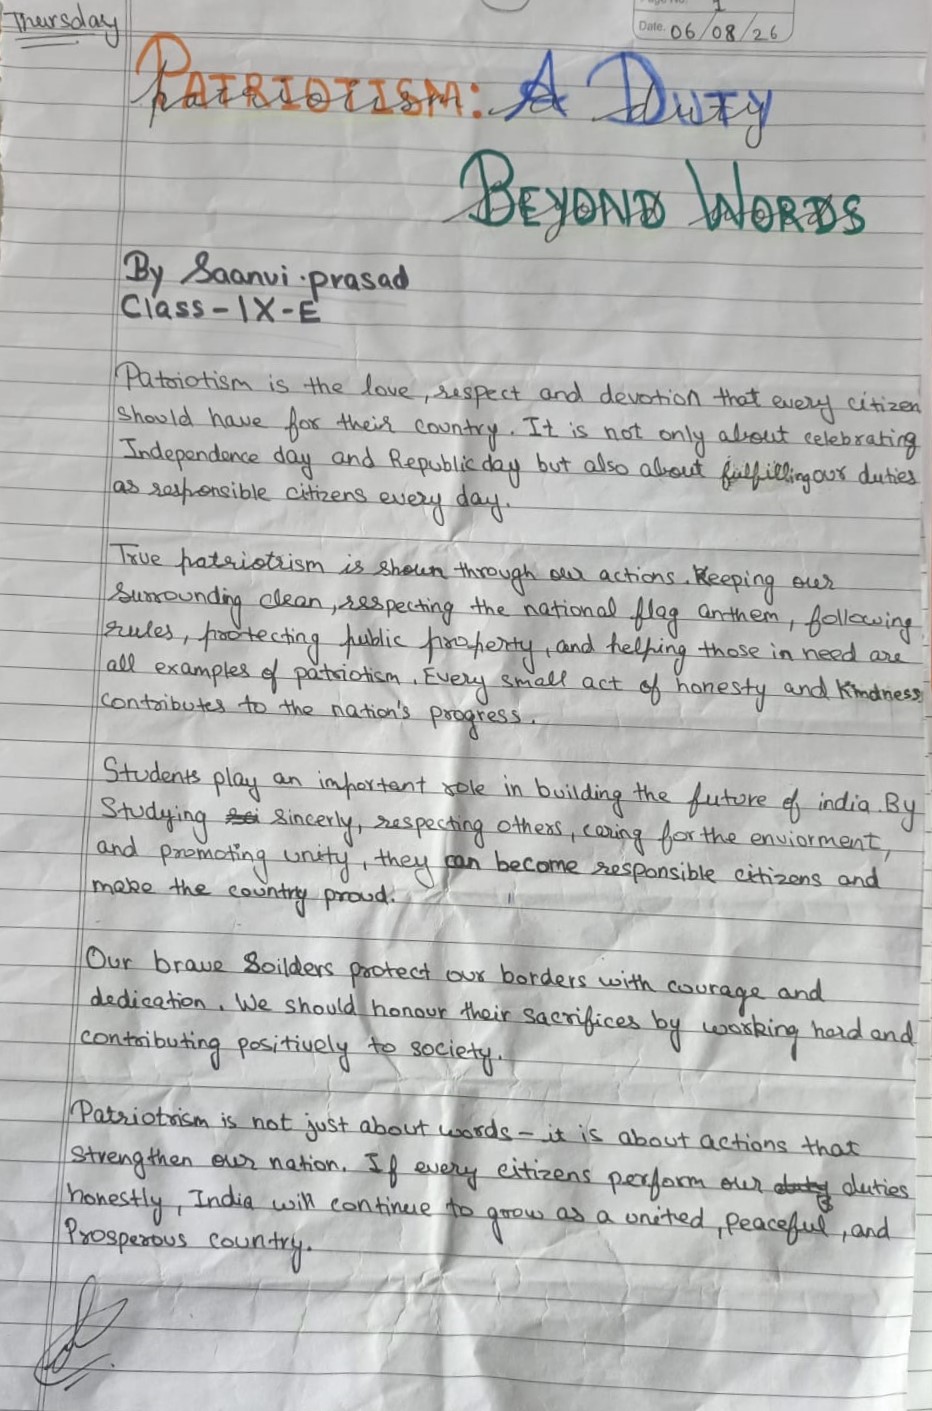 Thursday
Page No. 1
Date. 06/08/26
PATRIOTISM: A DUTY
BEYOND WORDS
By Saanvi.prasad
Class-IX-E
Patriotism is the love, respect and devotion that every citizen
should have for their country. It is not only about celebrating
Independence day and Republic day but also about fulfilling our duties
as responsible citizens every day.
True patriotrism is shown through our actions. Keeping our
Surrounding clean, respecting the national flag anthem, following
rules, protecting public property, and helping those in need are
all examples of patriotism. Every small act of honesty and kindness
contributes to the nation's progress.
Students play an important role in building the future of india. By
Studying sincerly, respecting others, caring for the enviorment,
and promoting unity, they can become responsible citizens and
make the country proud.
Our brave Soilders protect our borders with courage and
dedication. We should honour their sacrifices by working hard and
contributing positively to society.
Patriotrism is not just about words - it is about actions that
strengthen our nation. If every citizens perform our duty duties
honestly, India will continue to grow as a united, peaceful, and
Prosperous country.